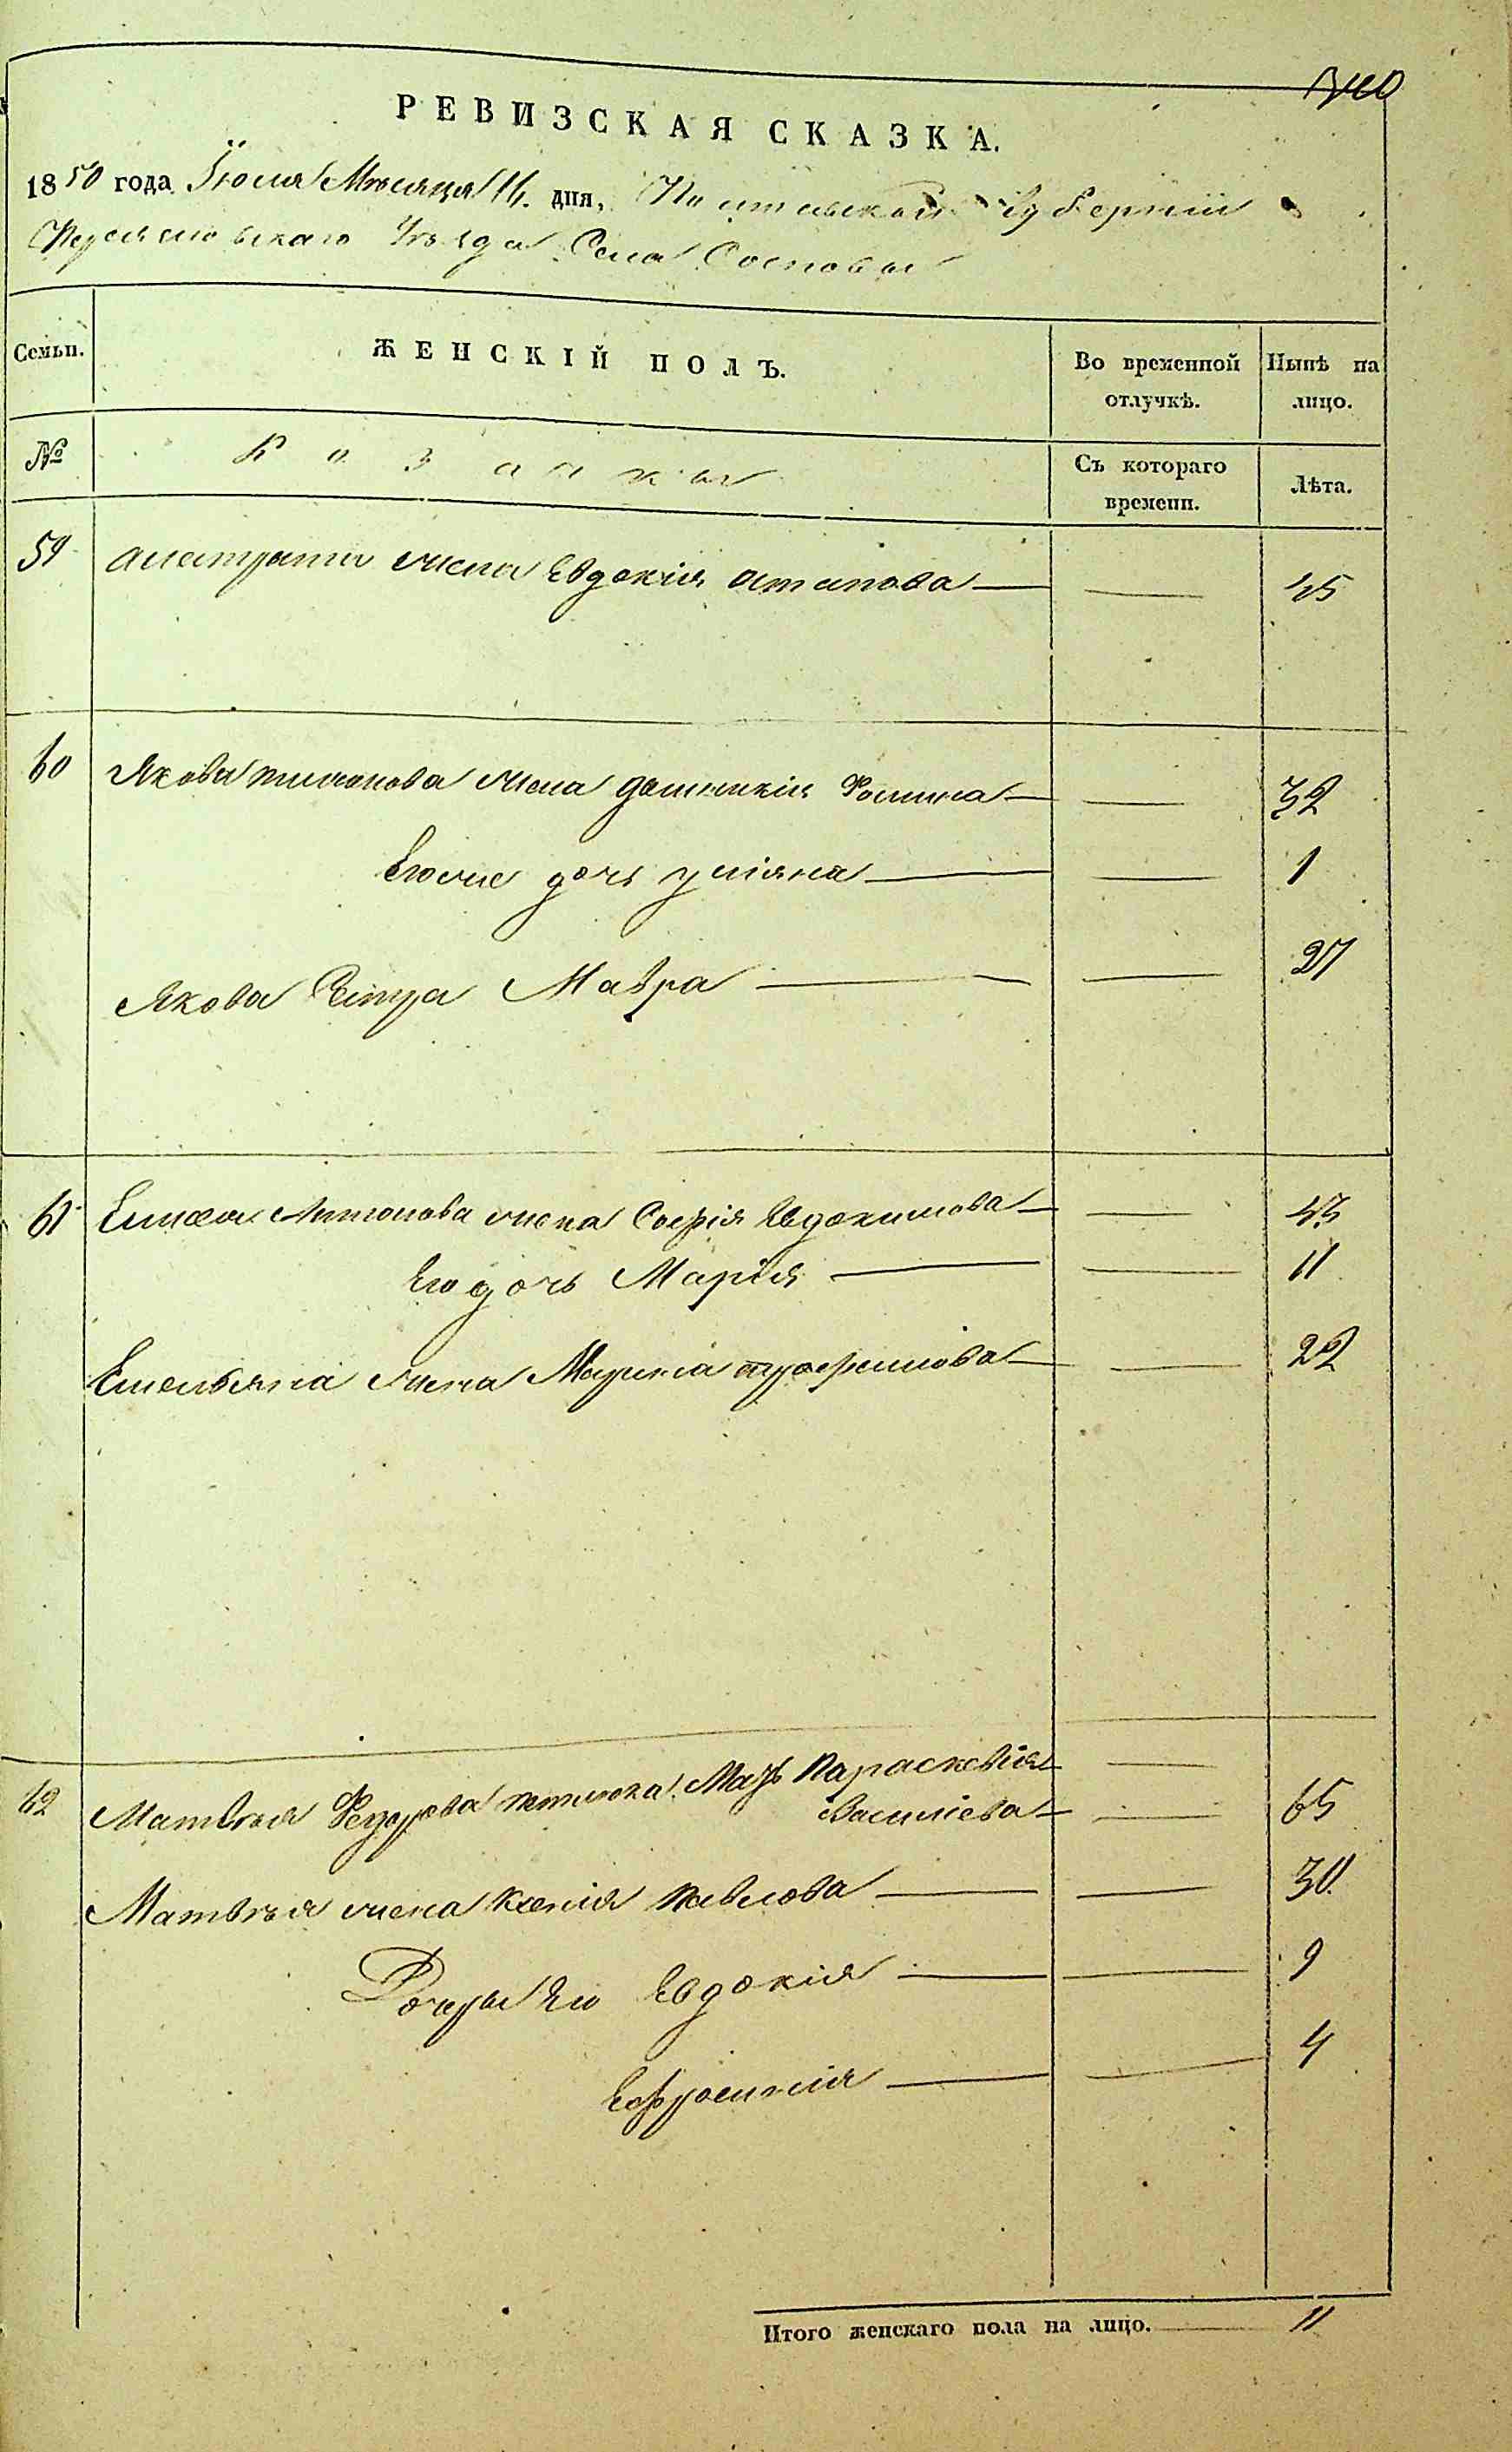 РЕВИЗСКАЯ СКАЗКА.
1850 года Іюля Мѣсяца 16. дня, Полтавской Губерніи
Переяславскаго Уѣзда Села Сосновы
Семьи.
ЖЕНСКІЙ ПОЛЪ.
Во временной отлучкѣ.
Нынѣ на лицо.
№
Козачки
Съ котораго времени.
Лѣта.
59 жена Евдокія Остапова — — 45
60 Якова жена Домникія Фомина — — 32
Егоже дочь Уліяна — — 1
Якова Сестра Мавра — — 27
61 Антонова жена Софія Евдокимова — — 43
Его дочь Марія — — 11
Емельяна жена Марина Трофимова — — 22
62 Матвѣя Федорова Мать Параскевія — —
Василіева — — 65
Матвѣя жена Ксенія Павлова — — 30
Дочери Его Евдокія — — 9
Ефросинія — — 4
Итого женскаго пола на лицо. — 11